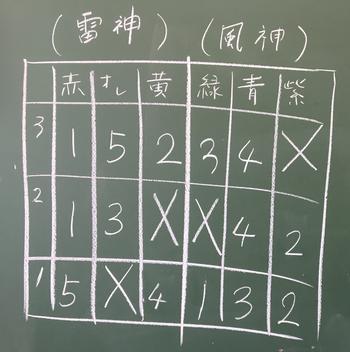 (雷神) (風神)
赤 オレ 黄 緑 青 紫
3 1 5 2 3 4 X
2 1 3 X X 4 2
1 5 X 4 1 3 2